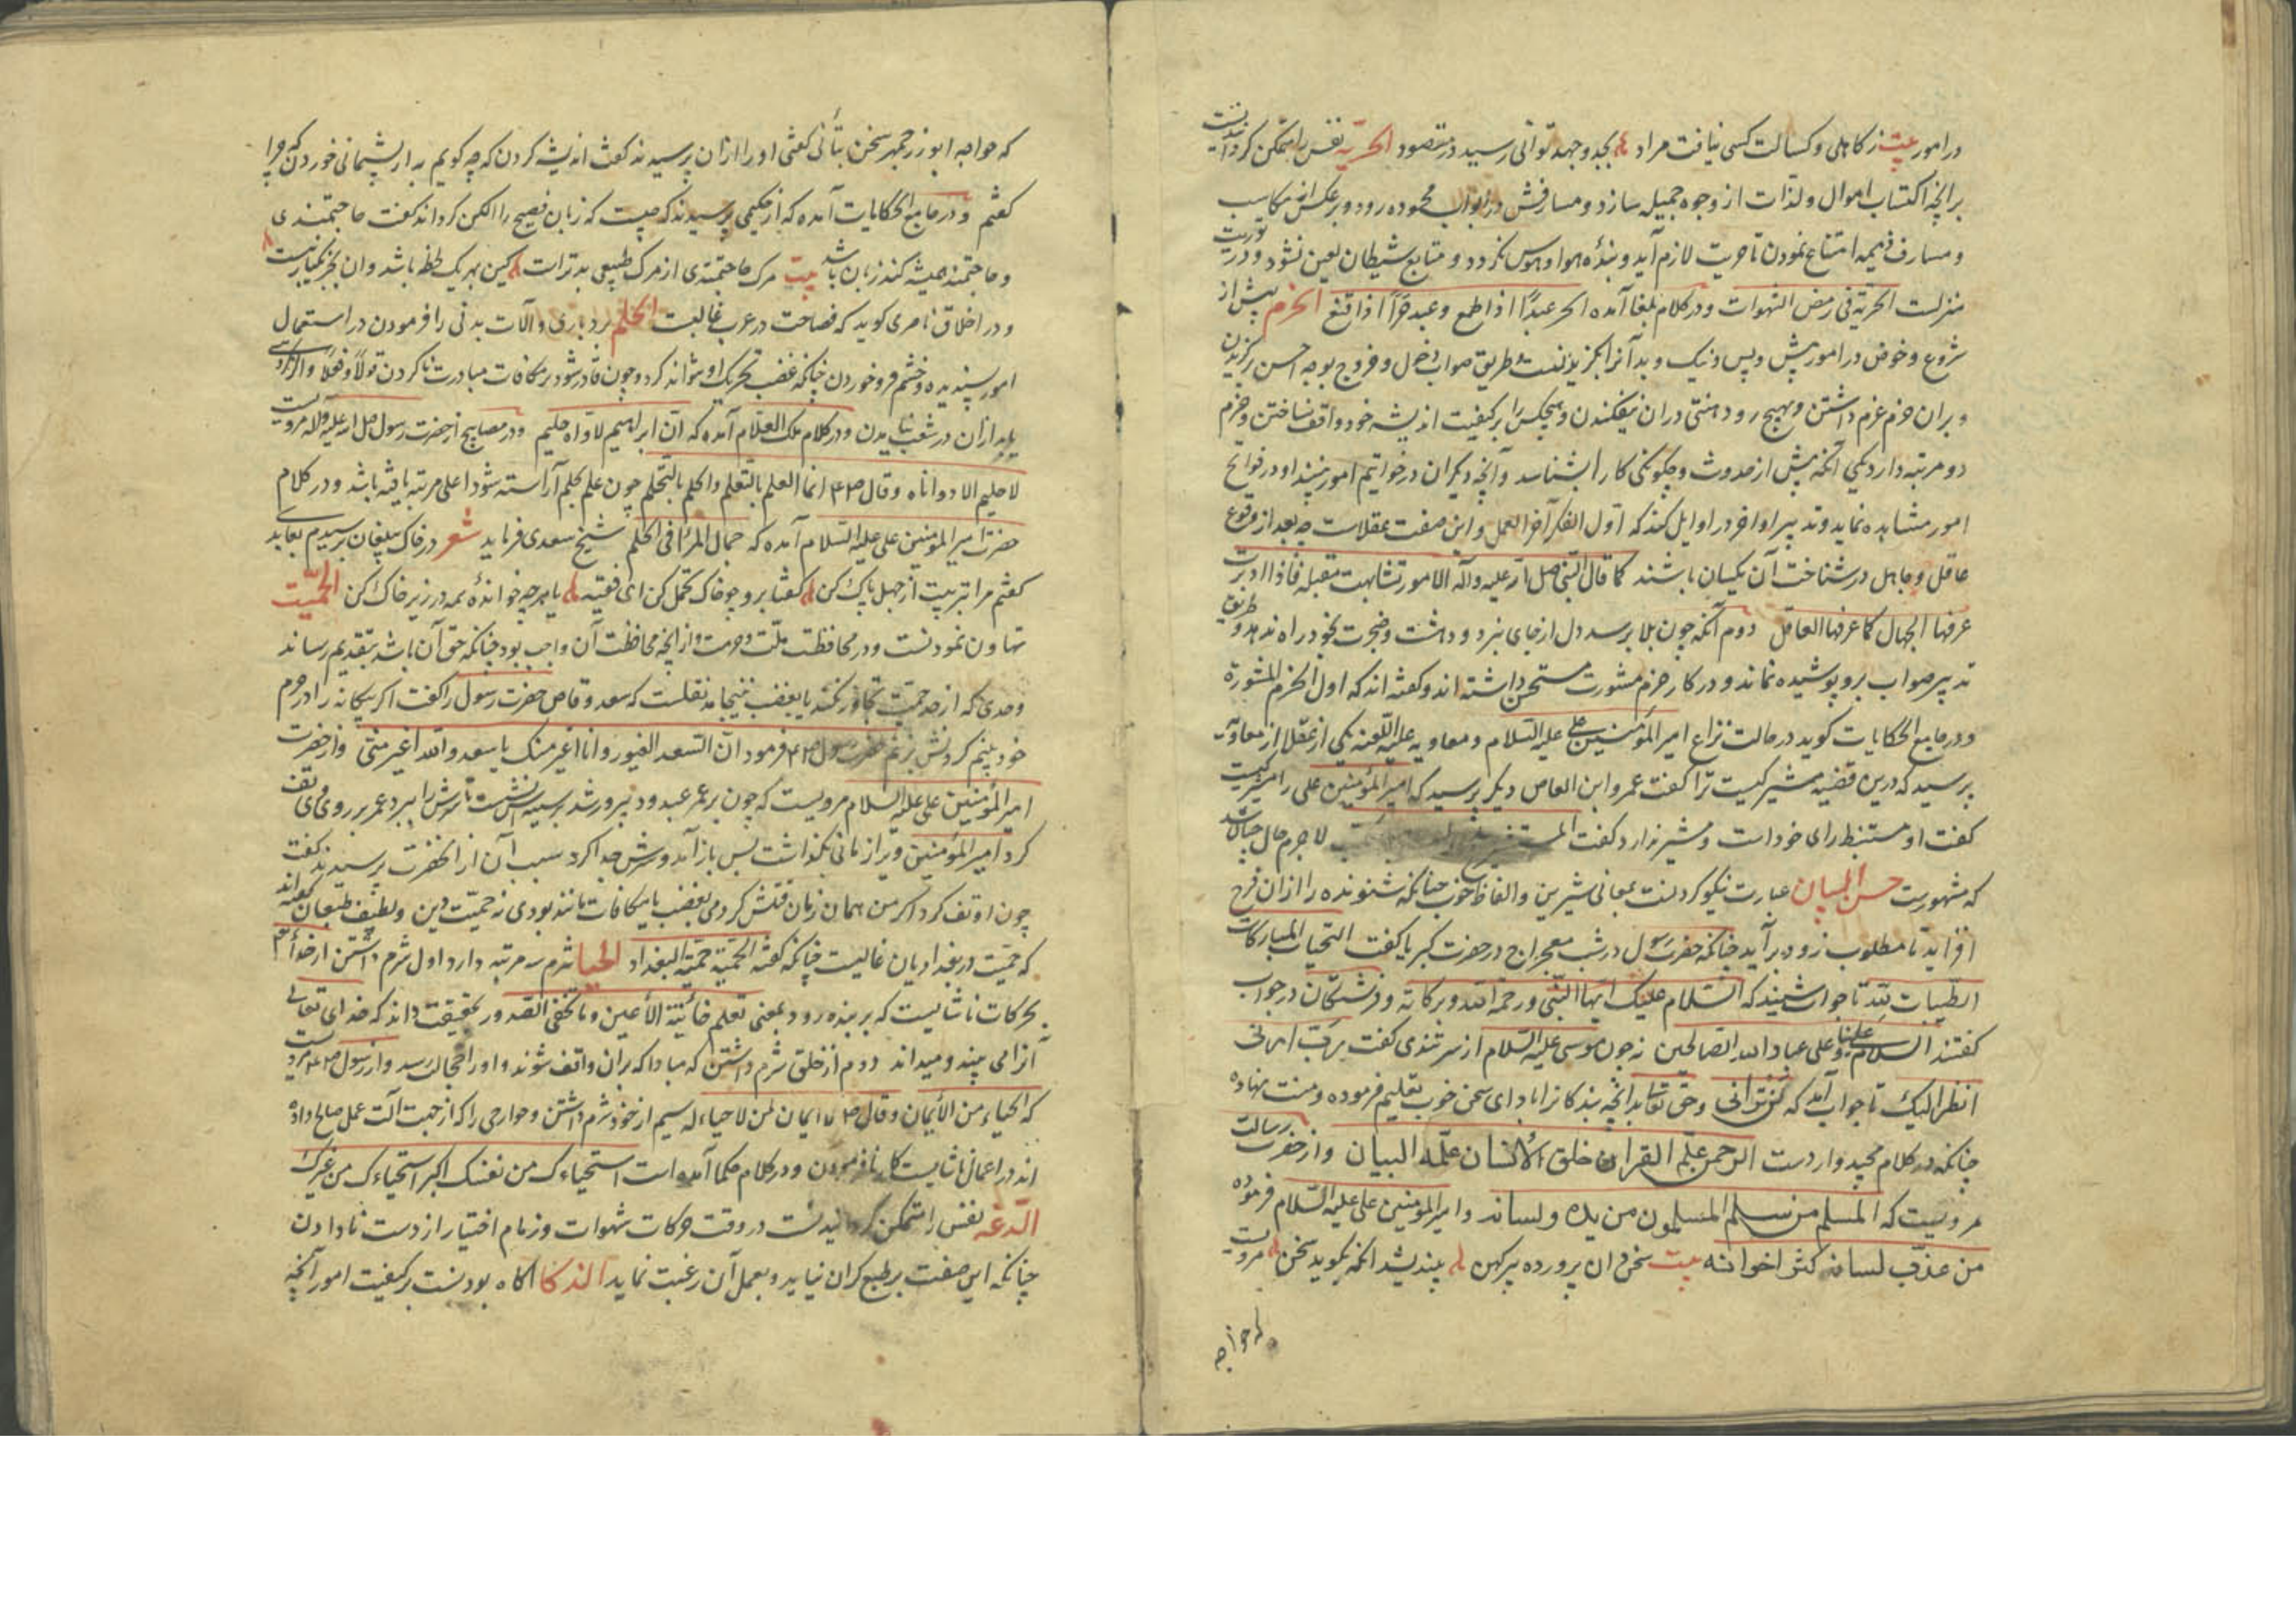 در امور بیت ز کاهلی و کسالت کسی نیافت مراد بجد و جهد توانی رسید در مقصود الحریّه نفس را متمکن گردانیدنست
بر آنچه اکتساب اموال و لذّات از وجوه جمیله سازد و مصارفش در ابواب محموده رود و بر عکس از مکاسب
و مصارف ذمیمه امتناع نمودن تا حریت لازم آید و بندهٔ هوا و هوس نگردد و متابع شیطان لعین نشود و در توریت
منزلست الحریّة فی رفض الشهوات و در کلام بلغا آمده الحر عبدًا اذا طمع و عبد حرّاً اذا قنع الحزم پیش از
شروع و خوض در امور پیش و پس و نیک و بد آنرا نگریدنست و طریق صواب دخول و خروج بوجه احسن برگزیدن
و بر آن حزم عزم داشتن و بهیچ رو دهنتی در آن نیفکندن و هیچکس را بر کیفیت اندیشه خود واقف نساختن و حزم
دو مرتبه دارد یکی آنکه پیش از حدوث و چگونگی کار را بشناسد و آنچه دیگران در خواتیم امور بینند او در فواتح
امور مشاهده نماید و تدبیر اواخر در اوایل کند که اول الفکر آخر العمل و این صفت عقلاست چه بعد از وقوع
عاقل و جاهل در شناخت آن یکسان باشند کما قال النبی صلی الله علیه و آله الامور تشابهت مقبله فاذا ادبرت
عرفها الجهال کما عرفها العاقل دوم آنکه چون بلا برسد دل از جای نبرد و دهشت و ضجرت بخود راه ندهد و طریق
تدبیر صواب برو پوشیده نماند و در کار حزم مشورت مستحسن داشته اند و گفته اند که اول الحزم المشورة
و در جامع الحکایات گوید در حالت نزاع امیر المؤمنین علی علیه السلام و معاویه علیه اللعنه یکی از عقلا از معاویه
پرسید که درین قضیه مشیر کیست ترا گفت عمرو ابن العاص دیگر پرسید که امیر المؤمنین علی را مشیر کیست
گفت او مستبط رای خود است و مشیر ندارد گفت لا جرم حال چنان شد
که مشهورست حسن البیان عبارت نیکو کردنست بمعانی شیرین و الفاظ خوب چنانکه شنونده را از ان فرح
افزاید تا مطلوب زود برآید چنانکه حضرت رسول در شب معراج در حضرت کبریا گفت التحیات المبارکات
الطیبات لله تا جواب شنید که السلام علیک ایها النبی و رحمة الله و برکاته و فرشتگان در جواب
گفتند السلام علینا و علی عباد الله الصالحین نه چون موسی علیه السلام از سر تندی گفت رب ارنی
انظر الیک تا جواب آمد که لن ترانی و حق تعالی آنچه بندگانرا بادای سخن خوب تعلیم فرموده و منت نهاده
چنانکه در کلام مجید واردست الرحمن علّم القران خلق الانسان علّمه البیان و از حضرت رسالت
مرویست که المسلم من سلم المسلمون من یده و لسانه و امیر المؤمنین علی علیه السلام فرموده
من عذب لسانه کثر اخوانه بیت سخن دان پرورده پیر کهن بیندیشد آنگه بگوید سخن مرویست
که خواجه
که خواجه ابوزرجمهر سخن بتأنی گفتی او را از آن پرسیدند گفت اندیشه کردن که چه گویم به از پشیمانی خوردن که چرا
گفتم و در جامع الحکایات آمده که از حکیمی پرسیدند که چیست که زبان فصیح را الکن گرداند گفت حاجتمندی
و حاجتمند همیشه کند زبان باشد بیت مرگ حاجتمندی از مرگ طبیعی بدترات کین بهر یک لحظه باشد وان بجز یکبار نیست
و در اخلاق ناصری گوید که فصاحت در عرب غالبست الحلم بردباری و آلات بدنی را فرمودن در استعمال
امور پسندیده و خشم فرو خوردن چنانکه غضب تحریک او نتواند کرد و چون قادر شود بر مکافات مبادرت ناکردن قولًا و فعلًا و اگر مکروهی
باید از آن در شغب نیامدن و در کلام ملک العلّام آمده که ان ابراهیم لاواه حلیم و در مصابیح از حضرت رسول صلی الله علیه و آله مرویست
لا حلیم الا ذو اناه و قال انما العلم بالتعلم و الحلم بالتحلم چون علم بحلم آراسته شود اعلی مرتبه یافته باشد و در کلام
حضرت امیر المؤمنین علی علیه السلام آمده که جمال المرء فی الحلم شیخ سعدی فرماید شعر در خاک بیلقان برسیدم بعابدی
گفتم مرا تربیت از جهل پاک کن گفتا برو چو خاک تحمل کن ای فقیه یا هر چه خواندهٔ همه در زیر خاک کن الحمیّت
تهاون نمودنست و در محافظت ملّت و حرمت و از آنچه محافظت آن واجب بود چنانکه حق آن باشد بتقدیم رساند
و حدی که از حد حمیّت تجاوز نکند یا بغضب نینجامد نقلست که سعد وقاص حضرت رسول را گفت اگر بیگانه را در حرم
خود بینم گردنش بزنم حضرت رسول فرمود ان السعد الغیور و انا اغیر منک یا سعد و الله اغیر منّی و از حضرت
امیر المؤمنین علی علیه السلام مرویست که چون بر عمر عبدود پیروز شد بر سینه اش نشست تا سرش را ببرد عمر بر روی وی تف
کرد امیر المؤمنین ویرا زمانی بگذاشت پس باز آمد و سرش جدا کرد سبب آن از آنحضرت پرسیدند گفت
چون او تف کرد اگر من همان زمان قتلش کردمی بغضب یا بمکافات مانند بودی نه حمیّت دین و لطیف طبعان گفته اند
که حمیّت در بغدادیان غالبست چنانکه گفته الحمیّة حمیّة البغداد الحیا شرم سه مرتبه دارد اول شرم داشتن از خدا
بحرکات ناشایست که بر بنده رود بمعنی تعلم خائنة الاعین و ما تخفی الصدور بحقیقت داند که خدای تعالی
آنرا می بیند و میداند دوم از خلق شرم داشتن که مبادا که بران واقف شوند و او را خجالت رسد و از رسول مرویست
که الحیاء من الایمان و قال لا ایمان لمن لا حیاء له سیم از خود شرم داشتن و جوارحی را که از جهت آلت عمل صالح داده
اند در اعمال ناشایست کار نافرمودن و در کلام حکما آمده است استحیاءک من نفسک اکبر استحیاءک من غیرک
الدّعه نفس را متمکن گردانیدنست در وقت حرکات شهوات و زمام اختیار از دست نادادن
چنانکه این صفت بر طبع گران نیاید و بعمل آن رغبت نماید الذکا آگاه بودنست بر کیفیت امور آنچه